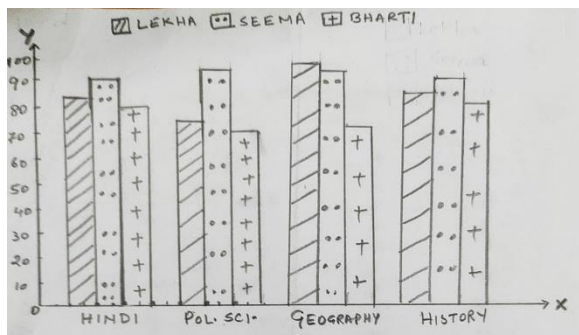 LEKHA SEEMA + BHARTI
Y
100
90
80
70
60
50
40
30
20
10
0
X
HINDI POL. SCI. GEOGRAPHY HISTORY